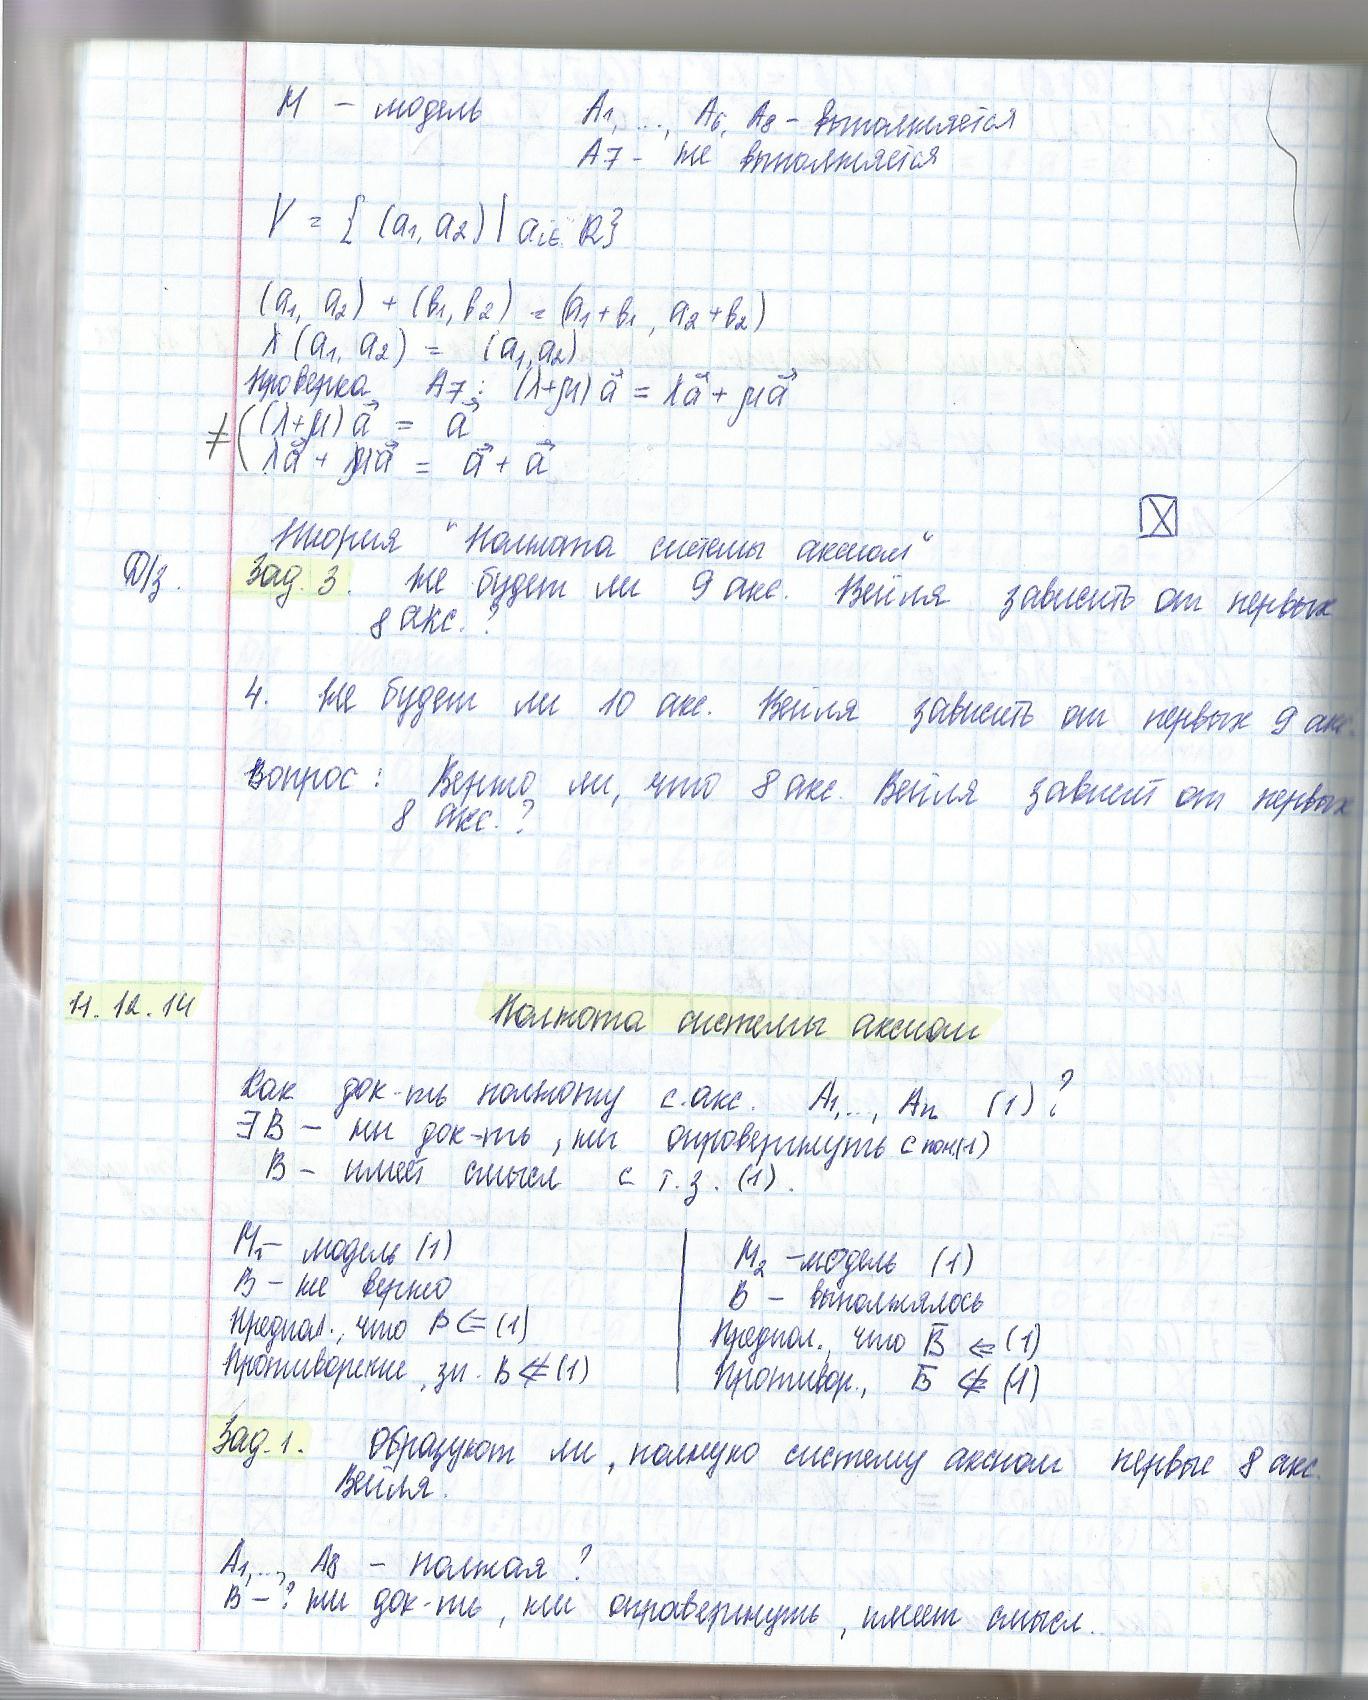 М – модель А1, ..., А6, А8 – выполняется
А7 – не выполняется
V = { (a1, a2) | ai∈ R}
(a1, a2) + (b1, b2) = (a1+b1, a2+b2)
λ (a1, a2) = (a1, a2)
Проверка А7: (λ+μ) a⃗ = λa⃗ + μa⃗
≠ ( (λ+μ) a⃗ = a⃗
λa⃗ + μa⃗ = a⃗ + a⃗
Теория "Полнота системы аксиом"
Д/з. Зад. 3. Не будет ли 9 акс. Вейля зависить от первых
8 акс.?
4. Не будет ли 10 акс. Вейля зависить от первых 9 акс.
Вопрос: Верно ли, что 8 акс. Вейля зависит от первых
8 акс.?
11.12.14 Полнота системы аксиом
Как док-ть полноту с. акс. А1,..., Аn (1)?
∃ В – ни док-ть, ни опровергнуть с пом.(1)
В – имеет смысл с т.з. (1).
М1 – модель (1) | М2 – модель (1)
В – не верно | В – выполнялось
Предпол., что В ⇐ (1) | Предпол., что B̅ ⇐ (1)
Противоречие, зн. В ⇍ (1) | Противор., B̅ ⇍ (1)
Зад. 1. Образуют ли, полную систему аксиом первые 8 акс.
Вейля.
А1,..., А8 – полная?
В – ? ни док-ть, ни опровергнуть, имеет смысл.